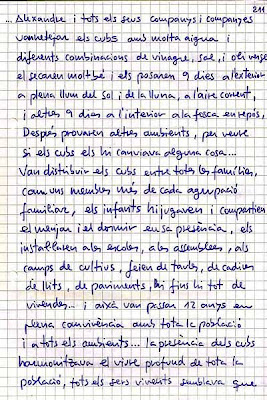 211
... Alexandre i tots els seus companys i companyes
van netejar els cubs amb molta aigua i
diferents combinacions de vinagre, sal, i oli verge
el secaren molt bé i els posaren 9 dies a l'exterior
a plena llum del sol i de la lluna, a l'aire corrent,
i altres 9 dies a l'interior a la fosca en repòs,
Després provaren altres ambients, per veure
si els cubs els hi canviava alguna cosa...
Van distribuir els cubs entre totes les famílies,
com uns membres més de cada agrupació
familiar, els infants hi jugaven i compartien
el menjar i el dormir en sa presència, els
instal·laren a les escoles, a les assemblees, als
camps de cultius, feien de taules, de cadires
de llits, de paviments, i fins hi tot de
vivendes... i així van passar 12 anys en
plena convivència amb tota la població
i a tots els ambients... la presència dels cubs
harmonitzava el viure profund de tota la
població, tots els sers vivents semblava que